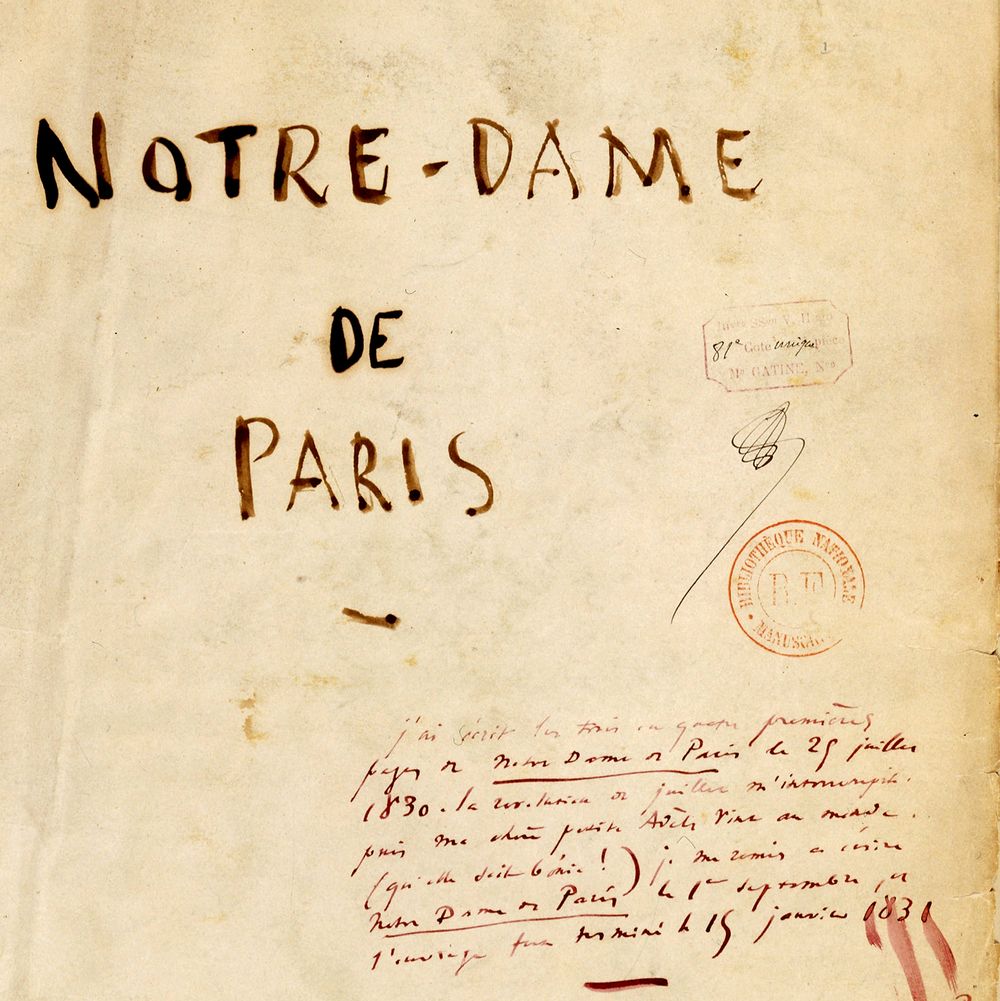 1
NOTRE-DAME
DE
PARIS
Inv.re Ssion V. Hugo
81e Cote unique pièce
Me GATINE, Nre
BIBLIOTHÈQUE NATIONALE
R.F
MANUSCRITS
j'ai écrit les trois ou quatre premières
pages de Notre Dame de Paris le 25 juillet
1830. la révolution de juillet m'interrompit.
puis ma chère petite Adèle vint au monde.
(qu'elle soit bénie!) je me remis à écrire
Notre Dame de Paris le 1er septembre, et
l'ouvrage fut terminé le 15 janvier 1831